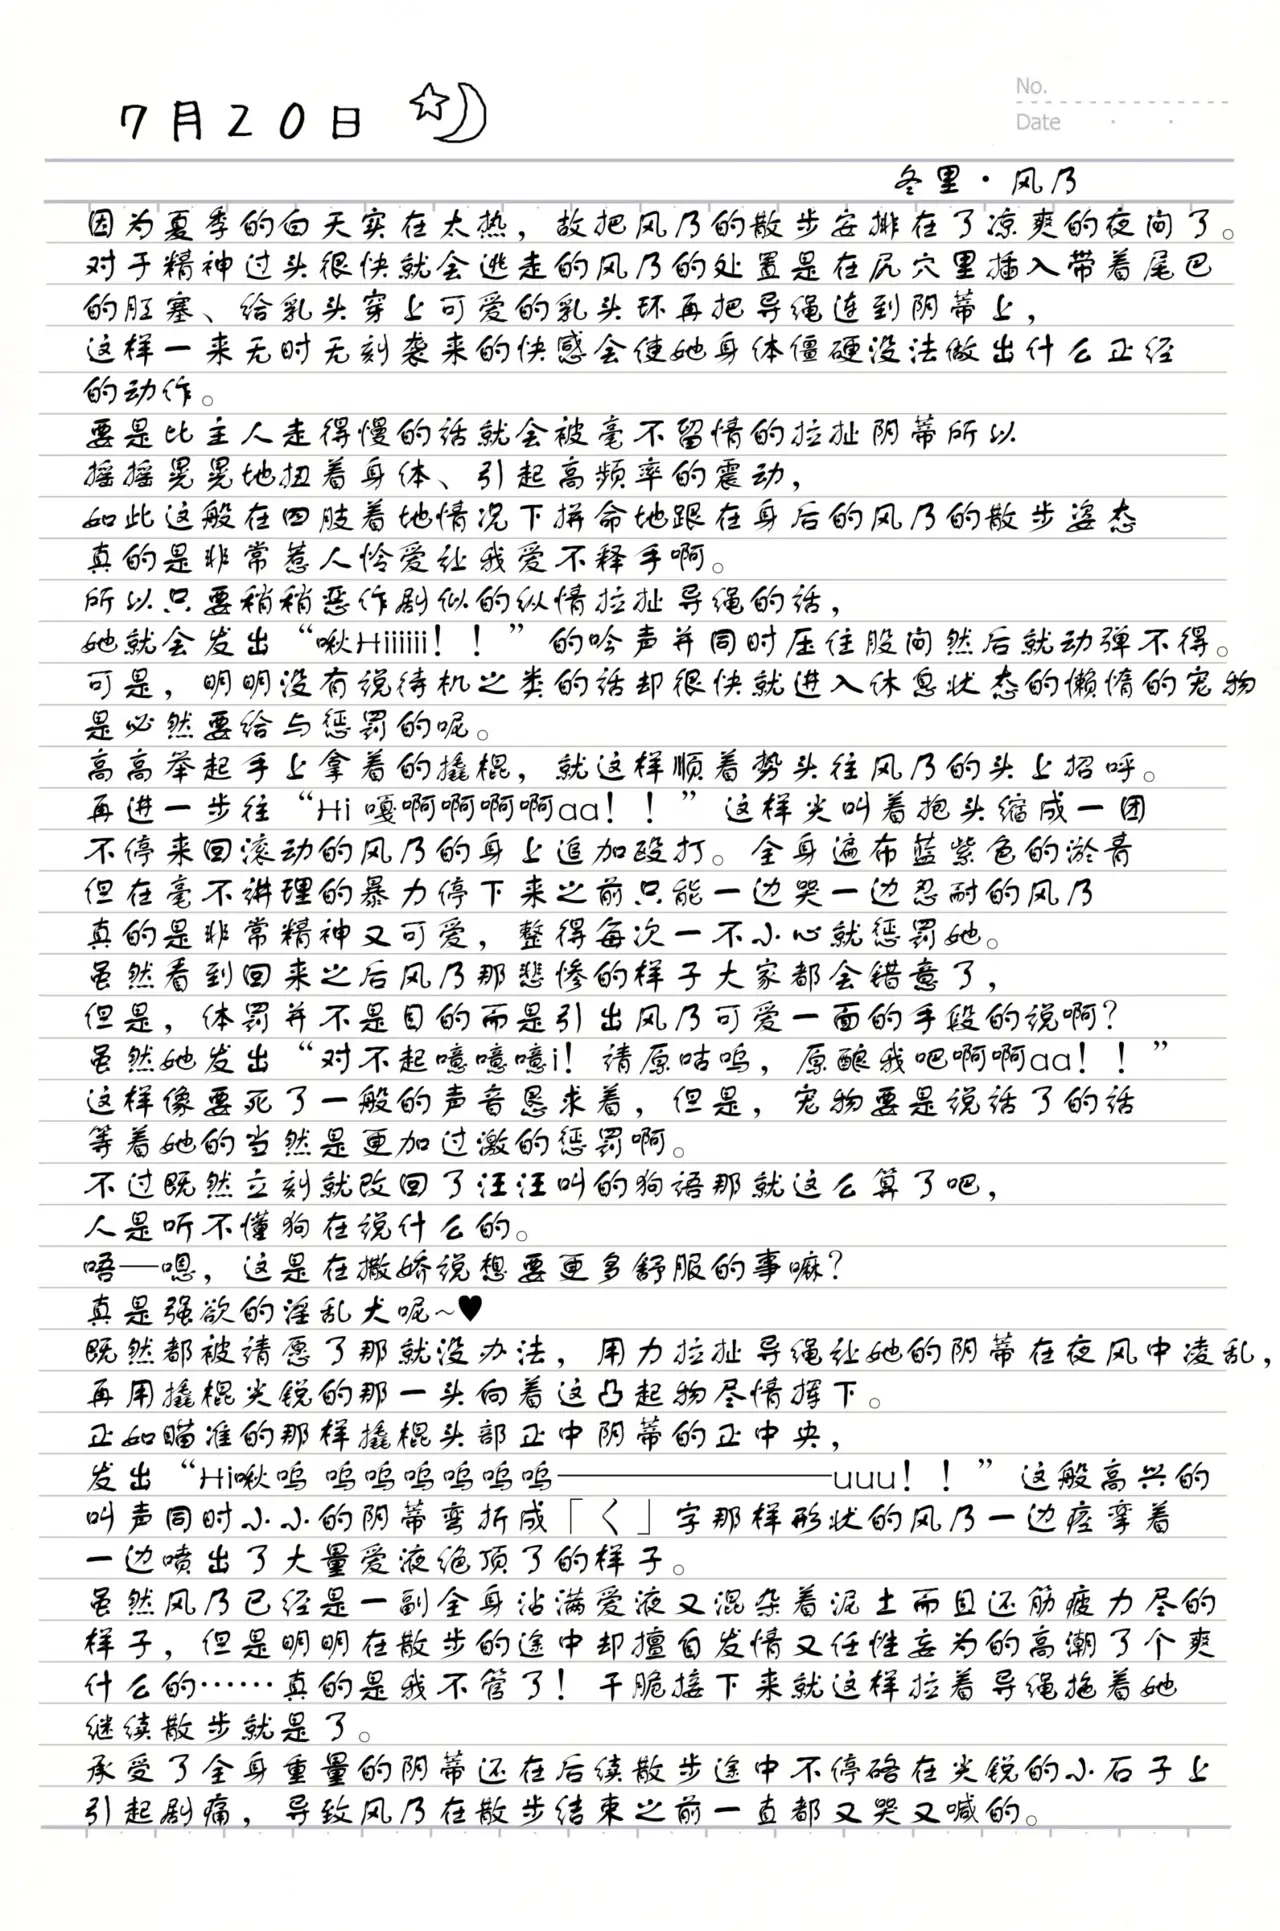 7月20日
No.
Date
冬里·风乃
因为夏季的白天实在太热，故把风乃的散步安排在了凉爽的夜间了。
对于精神过头很快就会逃走的风乃的处置是在尻穴里插入带着尾巴
的肛塞、给乳头穿上可爱的乳头环再把导绳连到阴蒂上，
这样一来无时无刻袭来的快感会使她身体僵硬没法做出什么正经
的动作。
要是比主人走得慢的话就会被毫不留情的拉扯阴蒂所以
摇摇晃晃地扭着身体、引起高频率的震动，
如此这般在四肢着地情况下拼命地跟在身后的风乃的散步姿态
真的是非常惹人怜爱让我爱不释手啊。
所以只要稍稍恶作剧似的纵情拉扯导绳的话，
她就会发出“啾Hiiiiii！！”的吟声并同时压住股间然后就动弹不得。
可是，明明没有说待机之类的话却很快就进入休息状态的懒惰的宠物
是必然要给与惩罚的呢。
高高举起手上拿着的撬棍，就这样顺着势头往风乃的头上招呼。
再进一步往“Hi嘎啊啊啊啊aa！！”这样尖叫着抱头缩成一团
不停来回滚动的风乃的身上追加殴打。全身遍布蓝紫色的淤青
但在毫不讲理的暴力停下来之前只能一边哭一边忍耐的风乃
真的是非常精神又可爱，整得每次一不小心就惩罚她。
虽然看到回来之后风乃那悲惨的样子大家都会错意了，
但是，体罚并不是目的而是引出风乃可爱一面的手段的说啊？
虽然她发出“对不起噫噫噫i！请原咕呜，原酿我吧啊啊aa！！”
这样像要死了一般的声音恳求着，但是，宠物要是说话了的话
等着她的当然是更加过激的惩罚啊。
不过既然立刻就改回了汪汪叫的狗语那就这么算了吧，
人是听不懂狗在说什么的。
唔—嗯，这是在撒娇说想要更多舒服的事嘛？
真是强欲的淫乱犬呢~♥
既然都被请愿了那就没办法，用力拉扯导绳让她的阴蒂在夜风中凌乱，
再用撬棍尖锐的那一头向着这凸起物尽情挥下。
正如瞄准的那样撬棍头部正中阴蒂的正中央，
发出“Hi啾呜 呜呜呜呜呜呜————————uuu！！”这般高兴的
叫声同时小小的阴蒂弯折成「く」字那样形状的风乃一边痉挛着
一边喷出了大量爱液绝顶了的样子。
虽然风乃已经是一副全身沾满爱液又混杂着泥土而且还筋疲力尽的
样子，但是明明在散步的途中却擅自发情又任性妄为的高潮了个爽
什么的……真的是我不管了！干脆接下来就这样拉着导绳拖着她
继续散步就是了。
承受了全身重量的阴蒂还在后续散步途中不停硌在尖锐的小石子上
引起剧痛，导致风乃在散步结束之前一直都又哭又喊的。